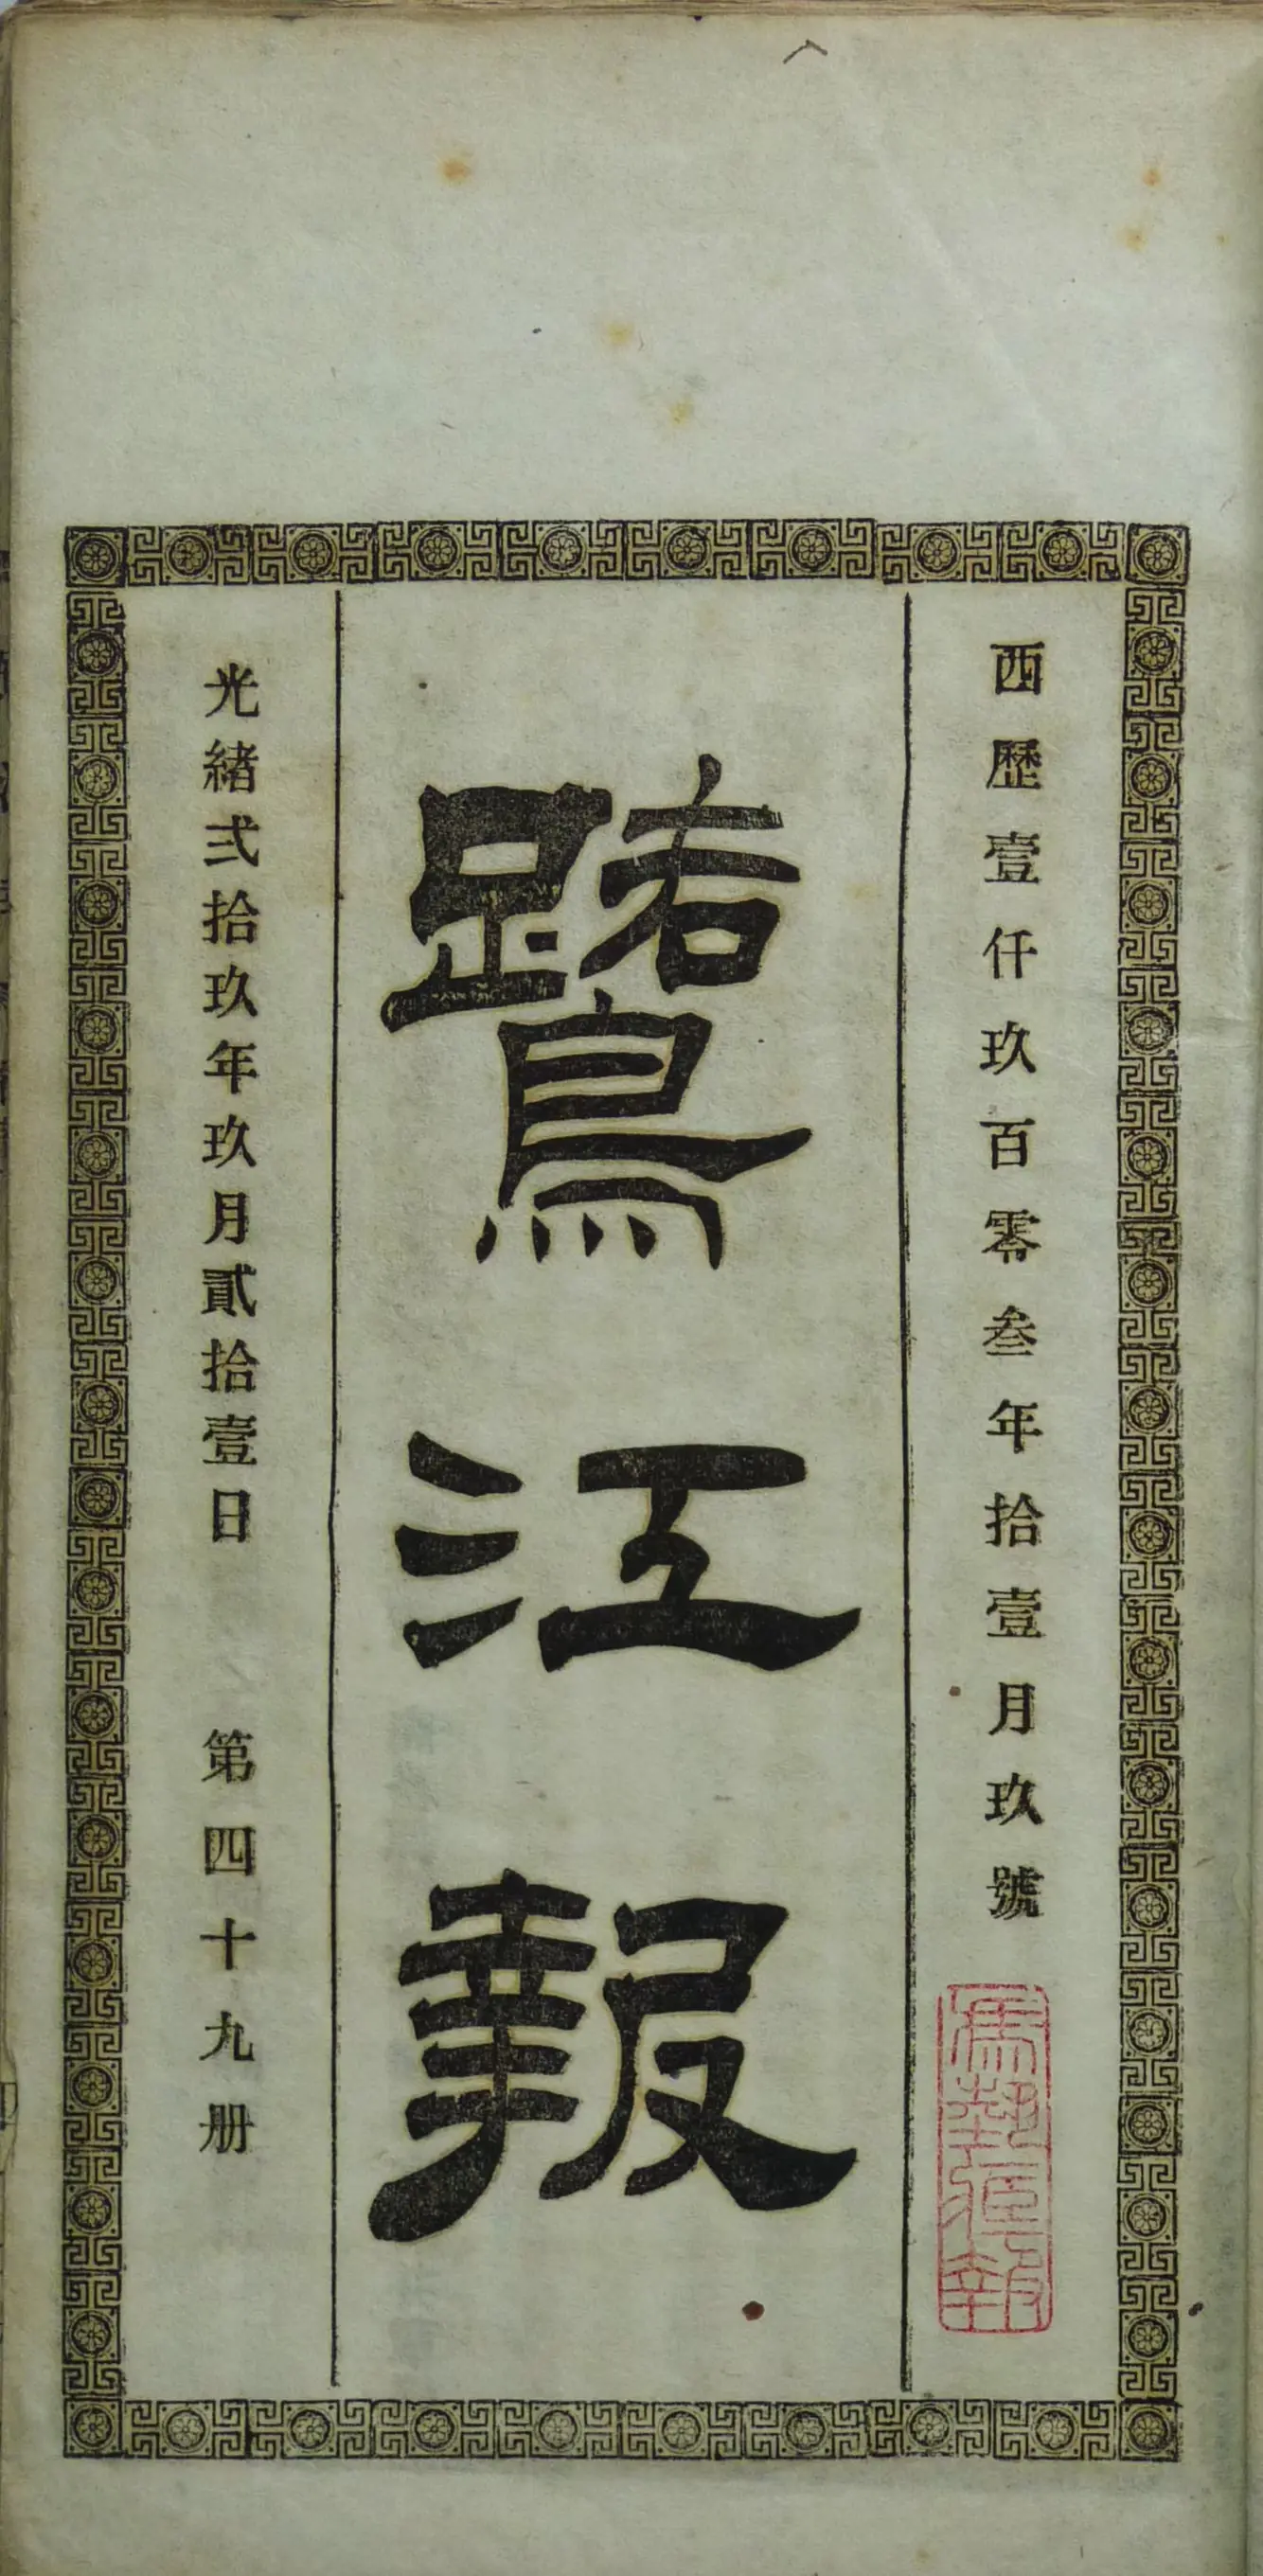 西歷壹仟玖百零叁年拾壹月玖號
鷺江報
光緒弍拾玖年玖月貳拾壹日 第四十九册